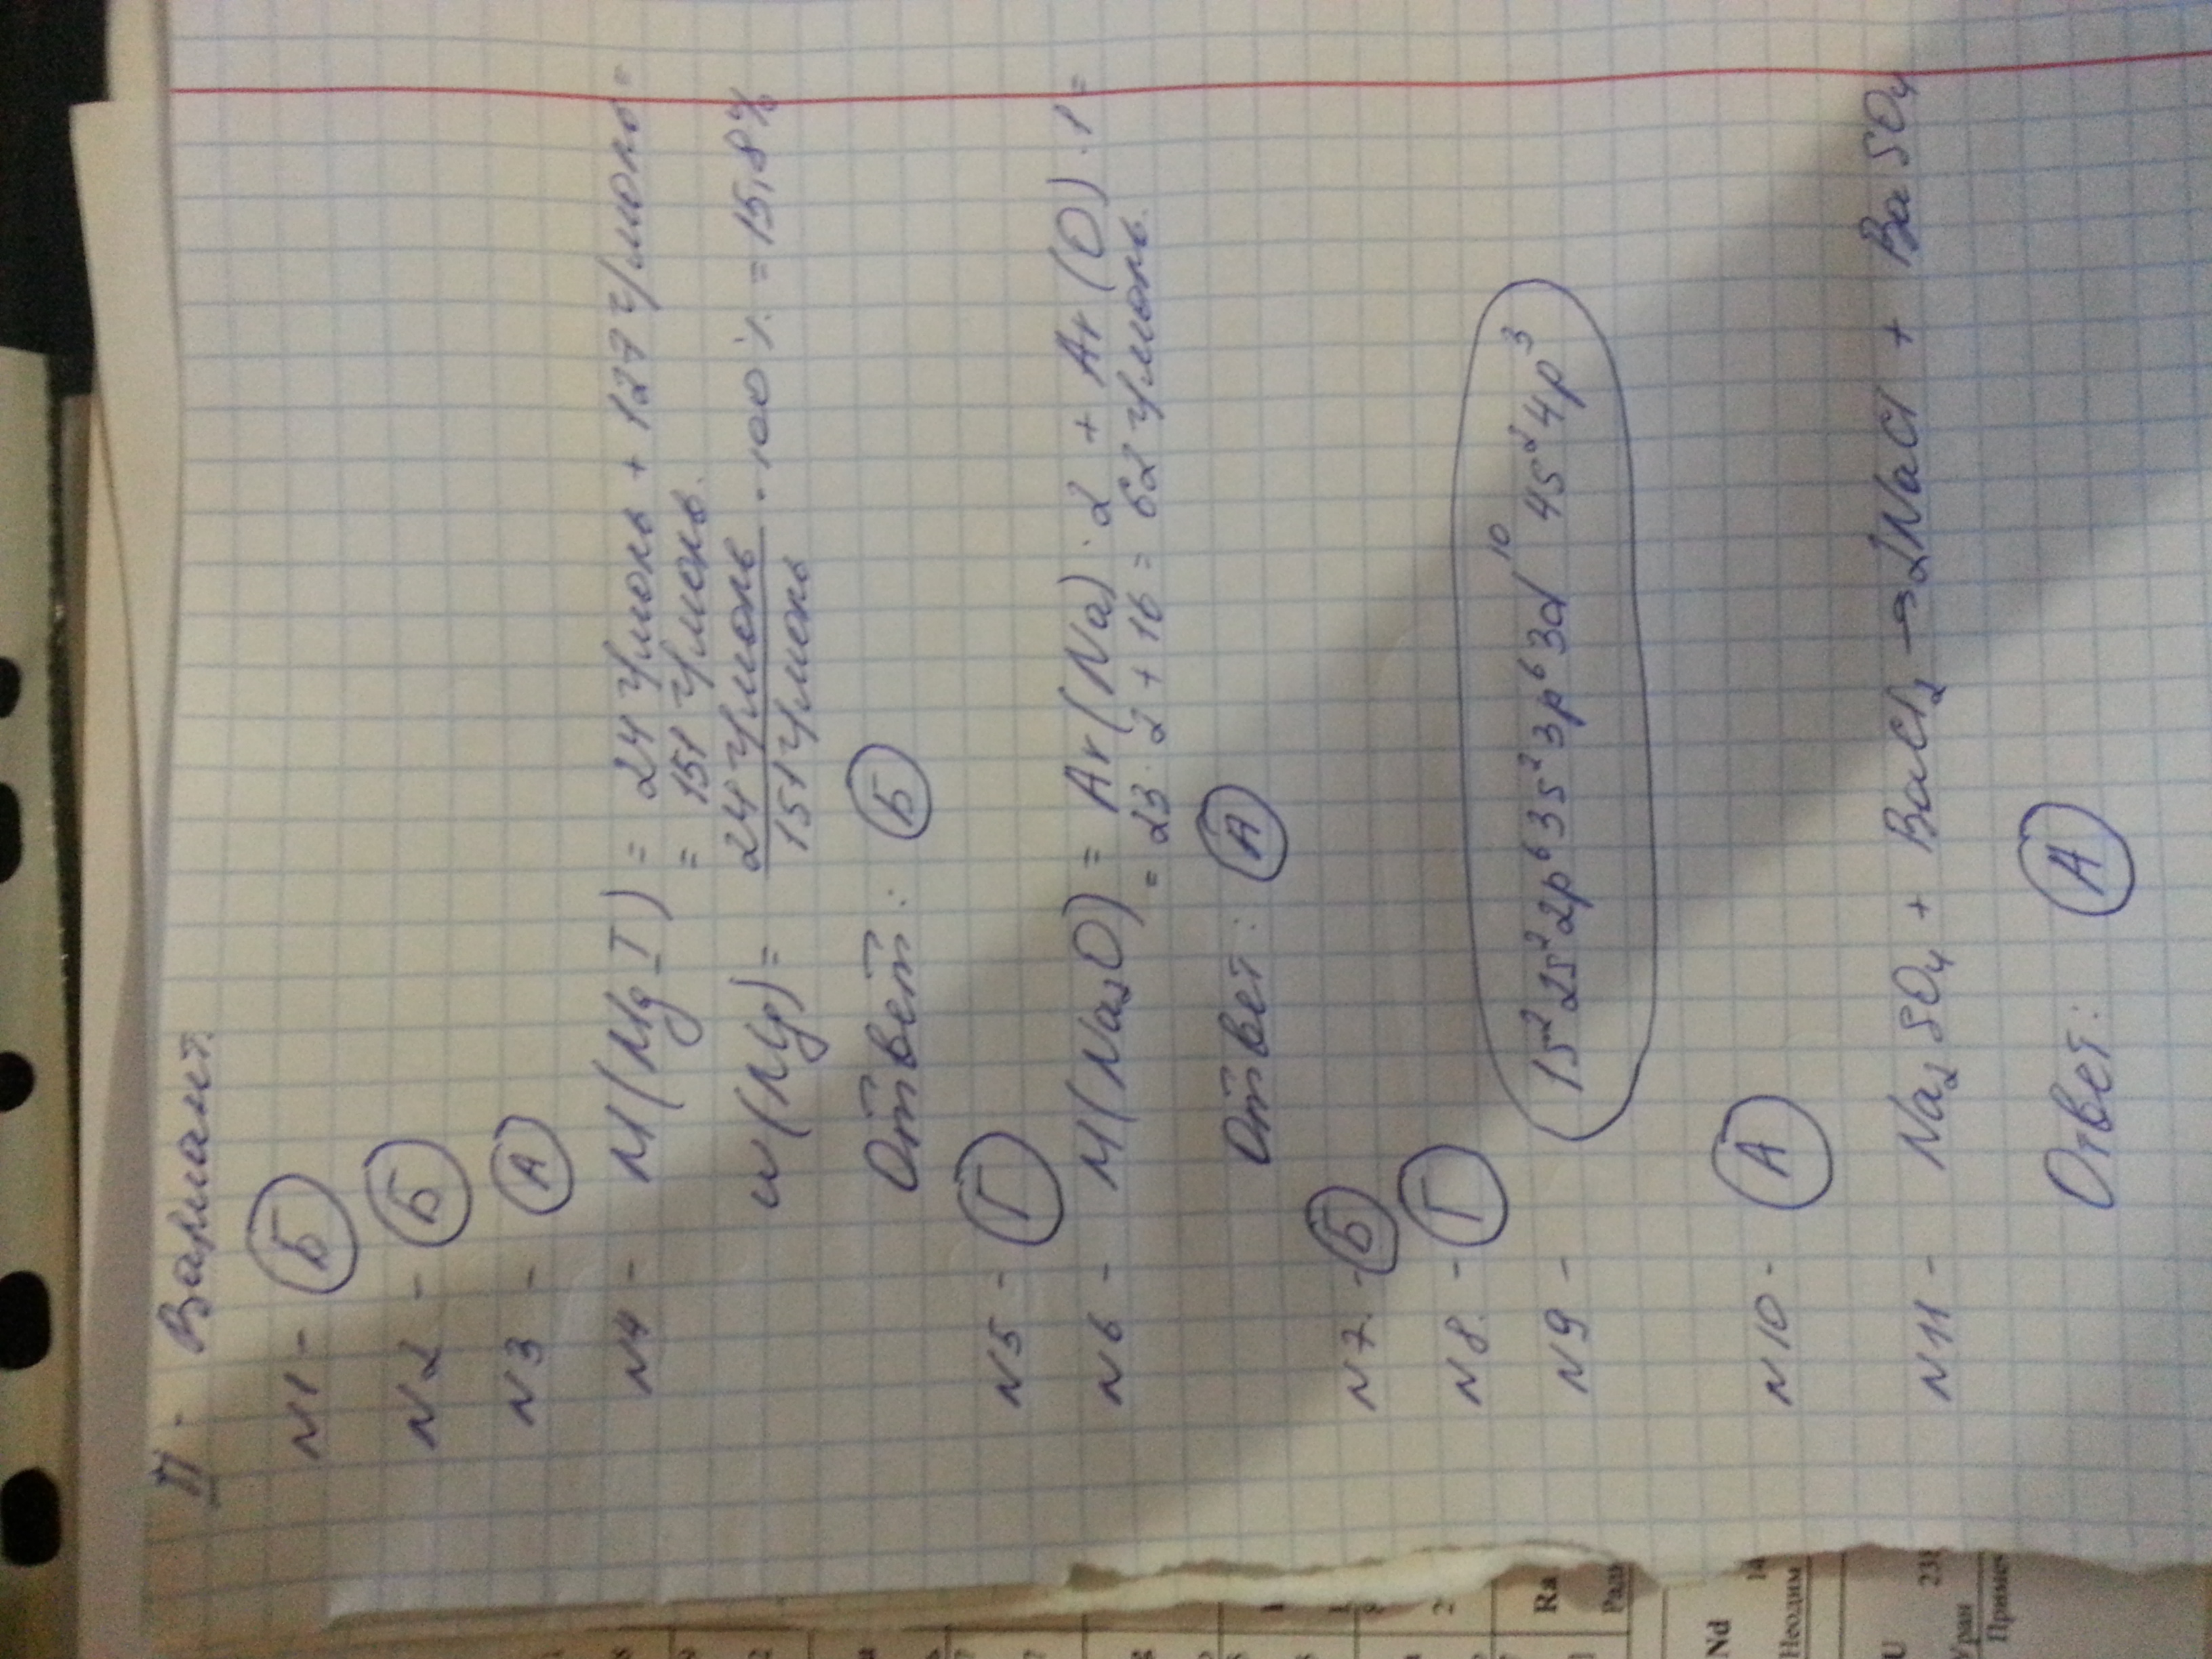 II - Вариант.
N1 - Б
N2 - Б
N3 - А
N4 - M(Mg I) = 24 г/моль + 127 г/моль =
= 151 г/моль.
w(Mg) = 24 г/моль / 151 г/моль · 100% = 15,8%
Ответ: Б
N5 - Г
N6 - M(Na₂O) = Ar(Na) · 2 + Ar(O) · 1 =
= 23 · 2 + 16 = 62 г/моль.
Ответ: А
N7. - Б
N8. - Г
N9 - 1s²2s²2p⁶3s²3p⁶3d¹⁰4s²4p³
N10 - А
N11 - Na₂SO₄ + BaCl₂ → 2NaCl + BaSO₄
Ответ: А
Ra
Nd
Неодим
U
Уран